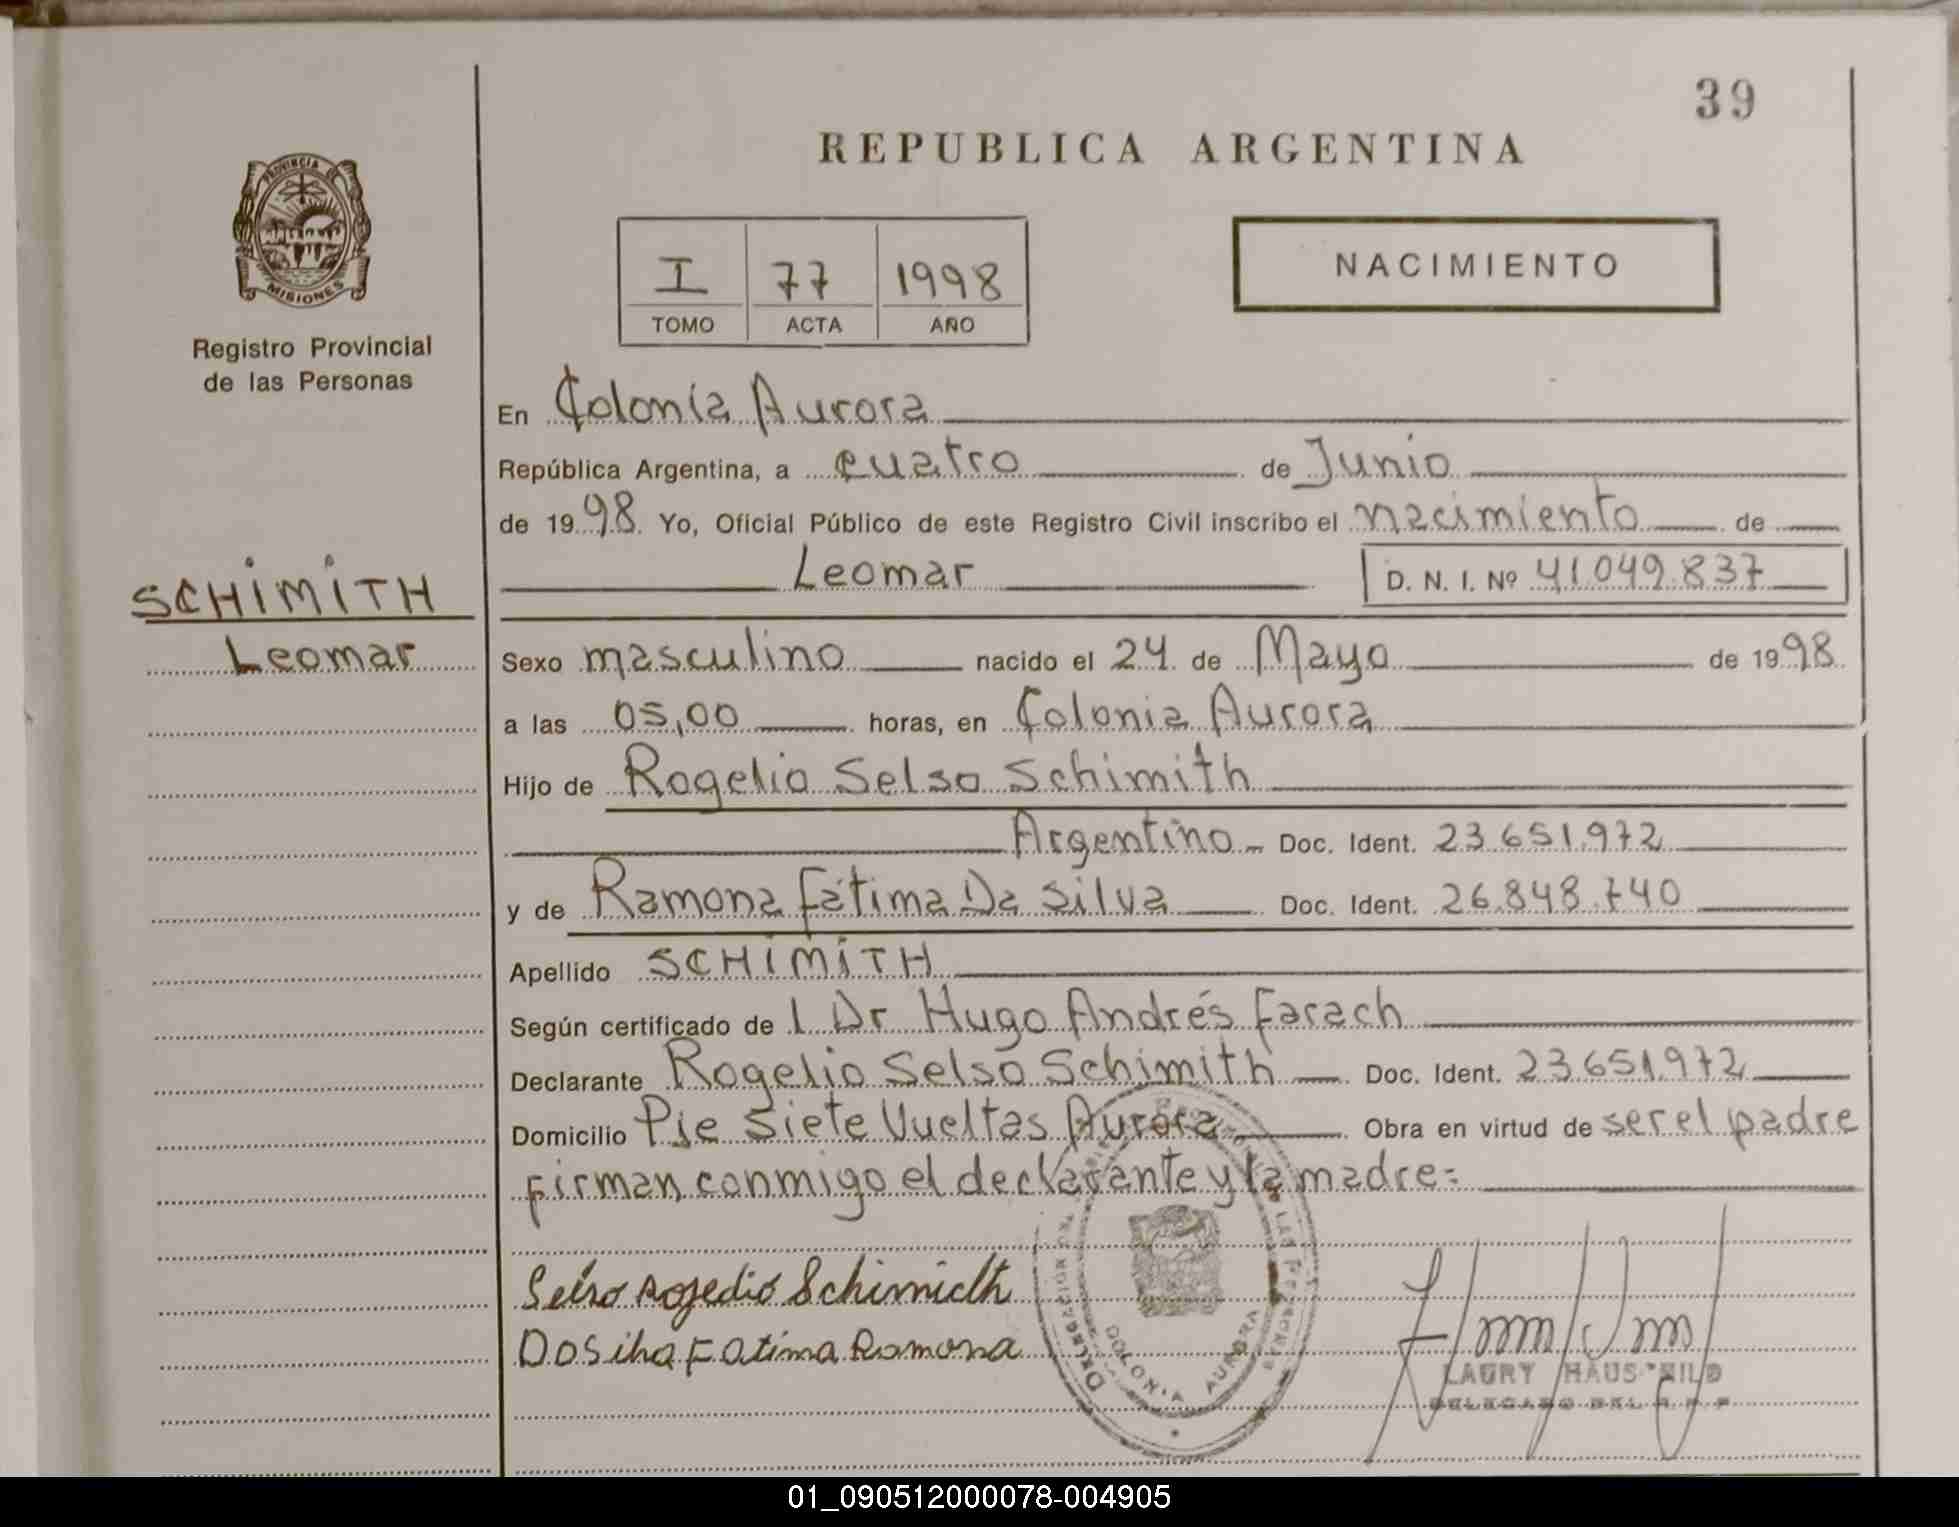 39
REPUBLICA ARGENTINA
PROVINCIA DE
MISIONES
Registro Provincial
de las Personas
I 77 1998
TOMO ACTA AÑO
NACIMIENTO
En Colonia Aurora
República Argentina, a cuatro de Junio
de 1998. Yo, Oficial Público de este Registro Civil inscribo el nacimiento de
Leomar D. N. I. Nº 41.049.837
SCHIMITH
Leomar
Sexo masculino nacido el 24 de Mayo de 1998
a las 05,00 horas, en Colonia Aurora
Hijo de Rogelio Selso Schimith
Argentino Doc. Ident. 23.651.972
y de Ramona Fátima Da Silva Doc. Ident. 26.848.740
Apellido SCHIMITH
Según certificado de l Dr Hugo Andrés Farach
Declarante Rogelio Selso Schimith Doc. Ident. 23.651.972
Domicilio Pje Siete Vueltas Aurora Obra en virtud de ser el padre
firman conmigo el declarante y la madre=
Selso Rogedio Schimidth
DaSilva Fatima Ramona
COLONIA AURORA
LAURY
DELEGADO DEL R.P.P
01_090512000078-004905